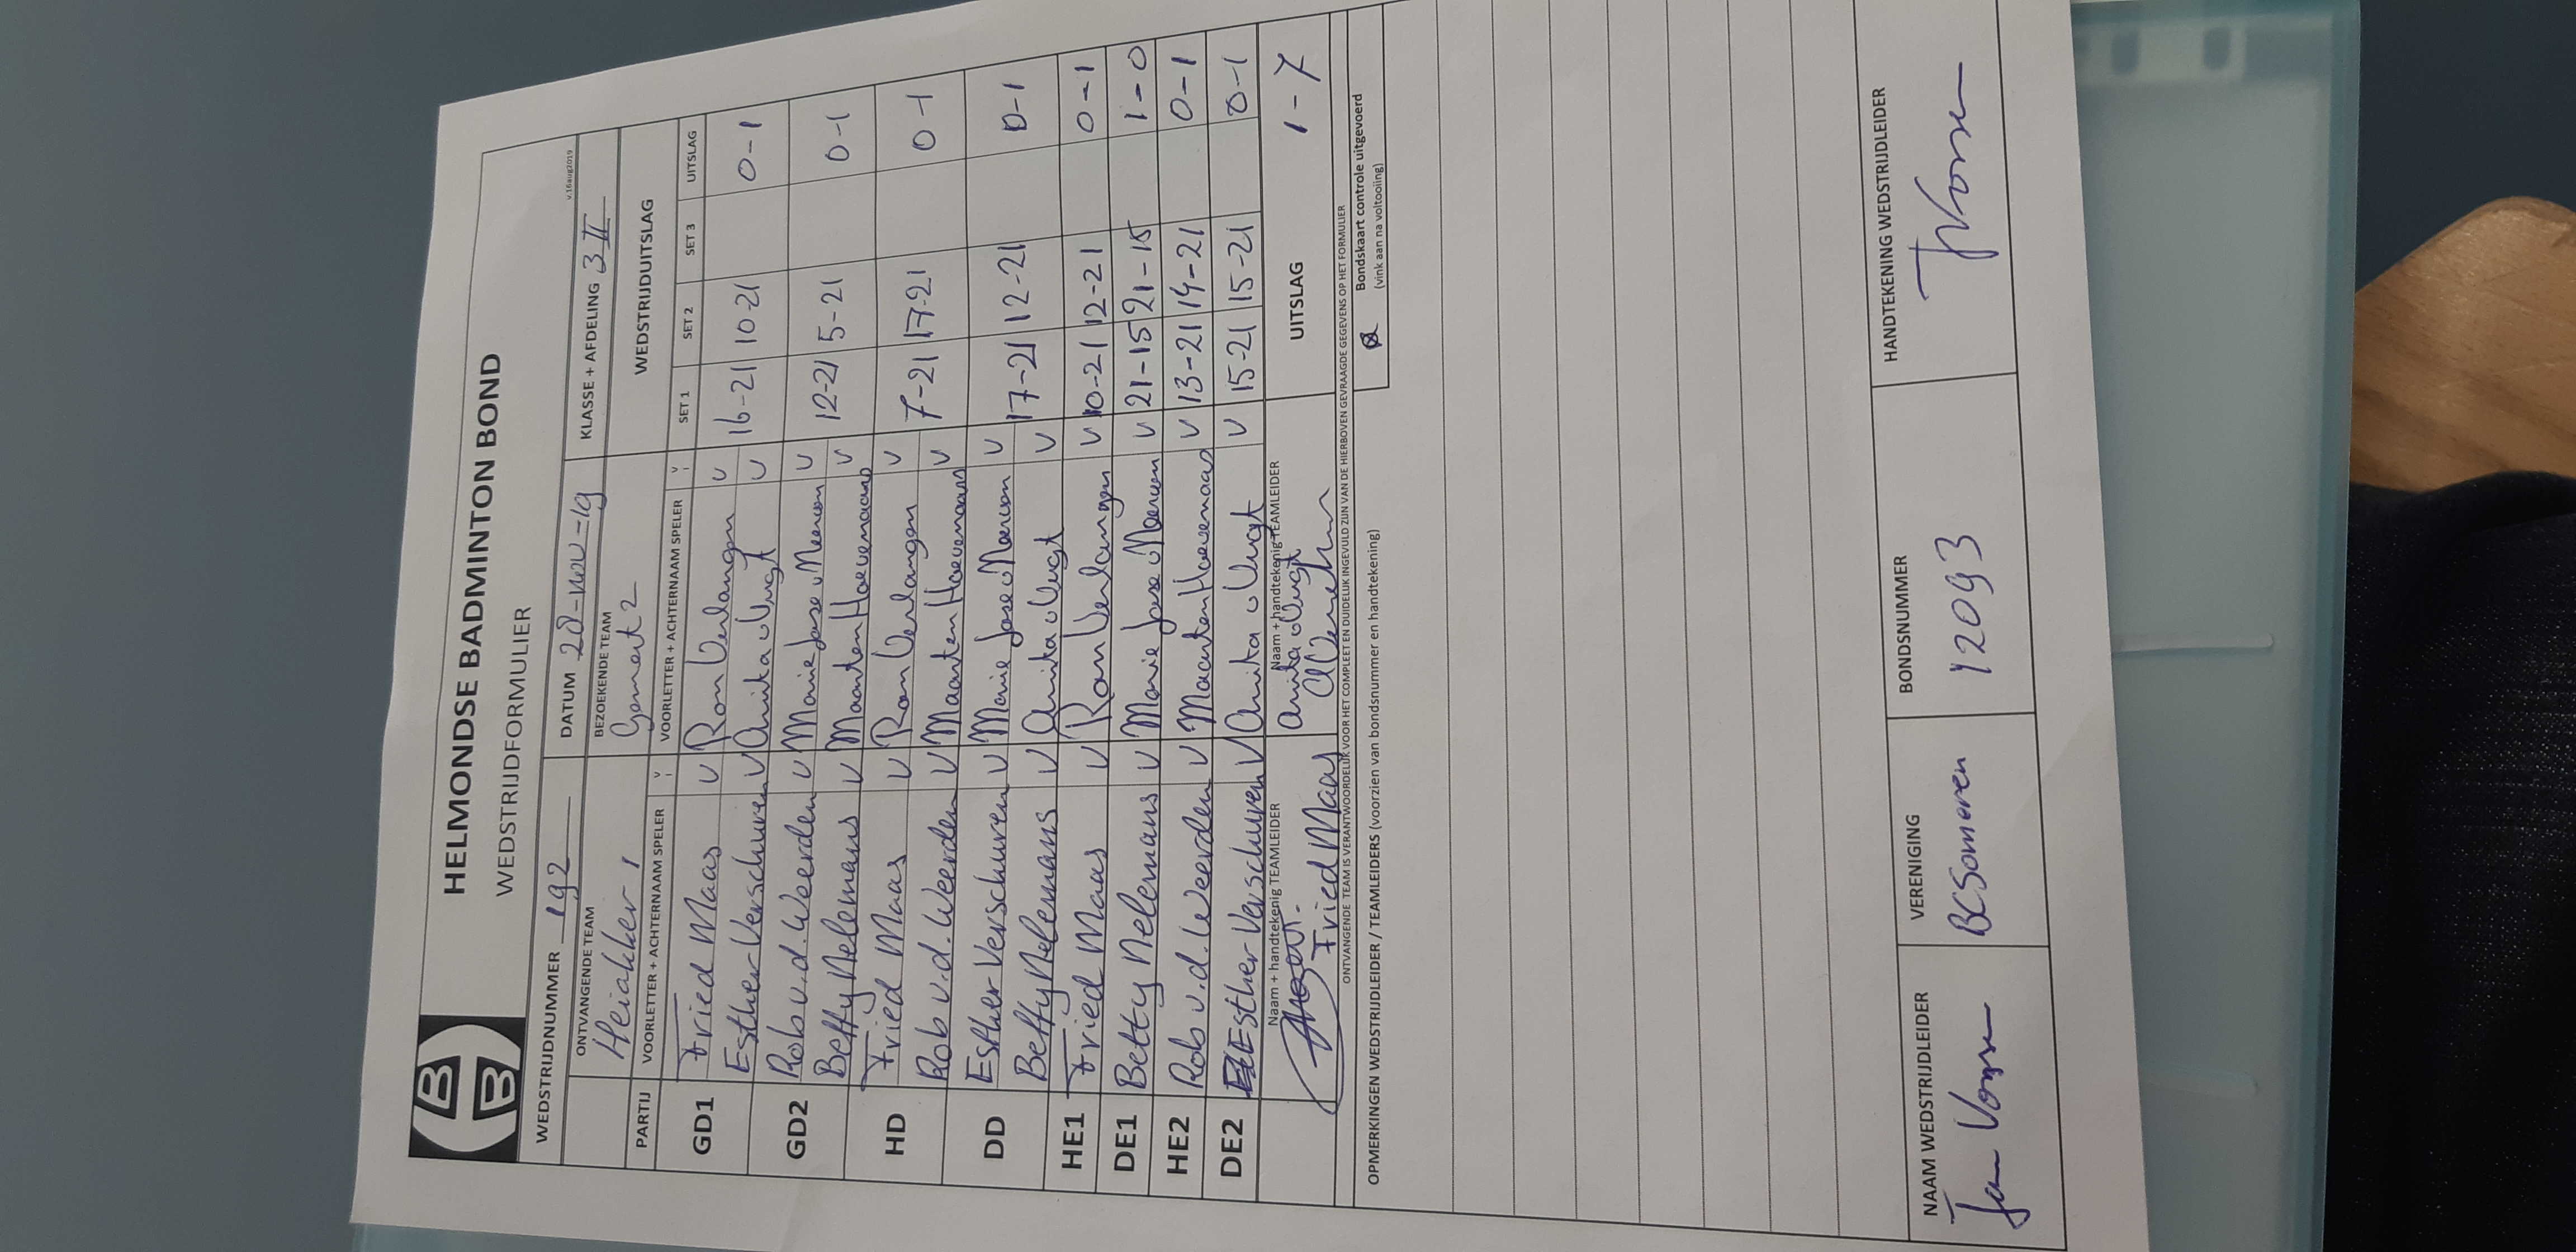 HELMONDSE BADMINTON BOND
WEDSTRIJDFORMULIER
v.16aug2019
WEDSTRIJDNUMMER 192 DATUM 28-nov-19 KLASSE + AFDELING 3 II
ONTVANGENDE TEAM BEZOEKENDE TEAM
Heiakker 1 Gemert 2 WEDSTRIJDUITSLAG
PARTIJ VOORLETTER + ACHTERNAAM SPELER V VOORLETTER + ACHTERNAAM SPELER V SET 1 SET 2 SET 3 UITSLAG
GD1 Fried Maas V Ron Verlangen V 16-21 10-21 0-1
Esther Verschuren V Anita Vugt V
GD2 Rob v.d. Weerden V Marie Jose Meeuwen V 12-21 5-21 0-1
Betty Nelemans V Maarten Hoevenaars V
HD Fried Maas V Ron Verlangen V 7-21 17-21 0-1
Rob v.d. Weerden V Maarten Hoevenaars V
DD Esther Verschuren V Marie Jose V 17-21 12-21 0-1
Betty Nelemans V Anita Vugt V
HE1 Fried Maas V Ron Verlangen V 10-21 12-21 0-1
DE1 Betty Nelemans V Marie Jose V 21-15 21-15 1-0
HE2 Rob v.d. Weerden V Maarten Hoevenaars V 13-21 14-21 0-1
DE2 Esther Verschuren V Anita Vugt V 15-21 15-21 0-1
Naam + handtekenig TEAMLEIDER Naam + handtekenig TEAMLEIDER UITSLAG 1-7
Fried Maas Anita Vugt
ONTVANGENDE TEAM IS VERANTWOORDELIJK VOOR HET COMPLEET EN DUIDELIJK INGEVULD ZIJN VAN DE HIERBOVEN GEVRAAGDE GEGEVENS OP HET FORMULIER
OPMERKINGEN WEDSTRIJDLEIDER / TEAMLEIDERS (voorzien van bondsnummer en handtekening)
Bondskaart controle uitgevoerd
(vink aan na voltooiing)
NAAM WEDSTRIJDLEIDER VERENIGING BONDSNUMMER HANDTEKENING WEDSTRIJDLEIDER
Jan BC Someren 12093